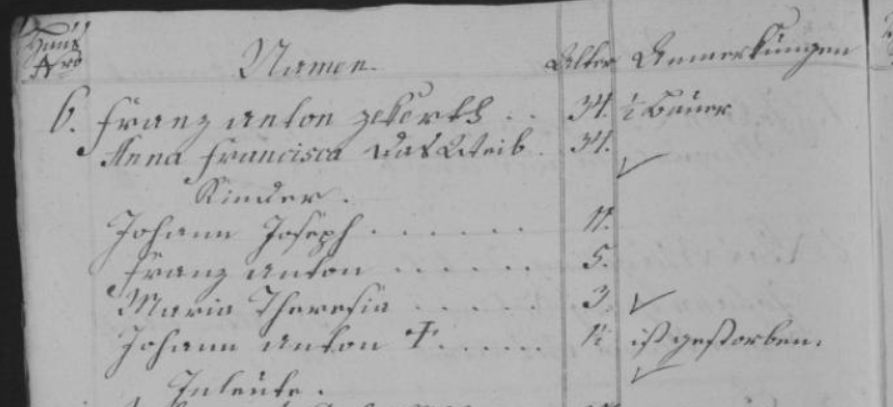 Haus Nro Namen. Alter Anmerkungen
6. Franz Anton 34. ½ Bauer
Anna Francisca das Weib. 34.
Kinder.
Johann Joseph 11.
Franz Anton 5.
Maria Theresia 3
Johann Anton ½ ist gestorben.
Inleute.